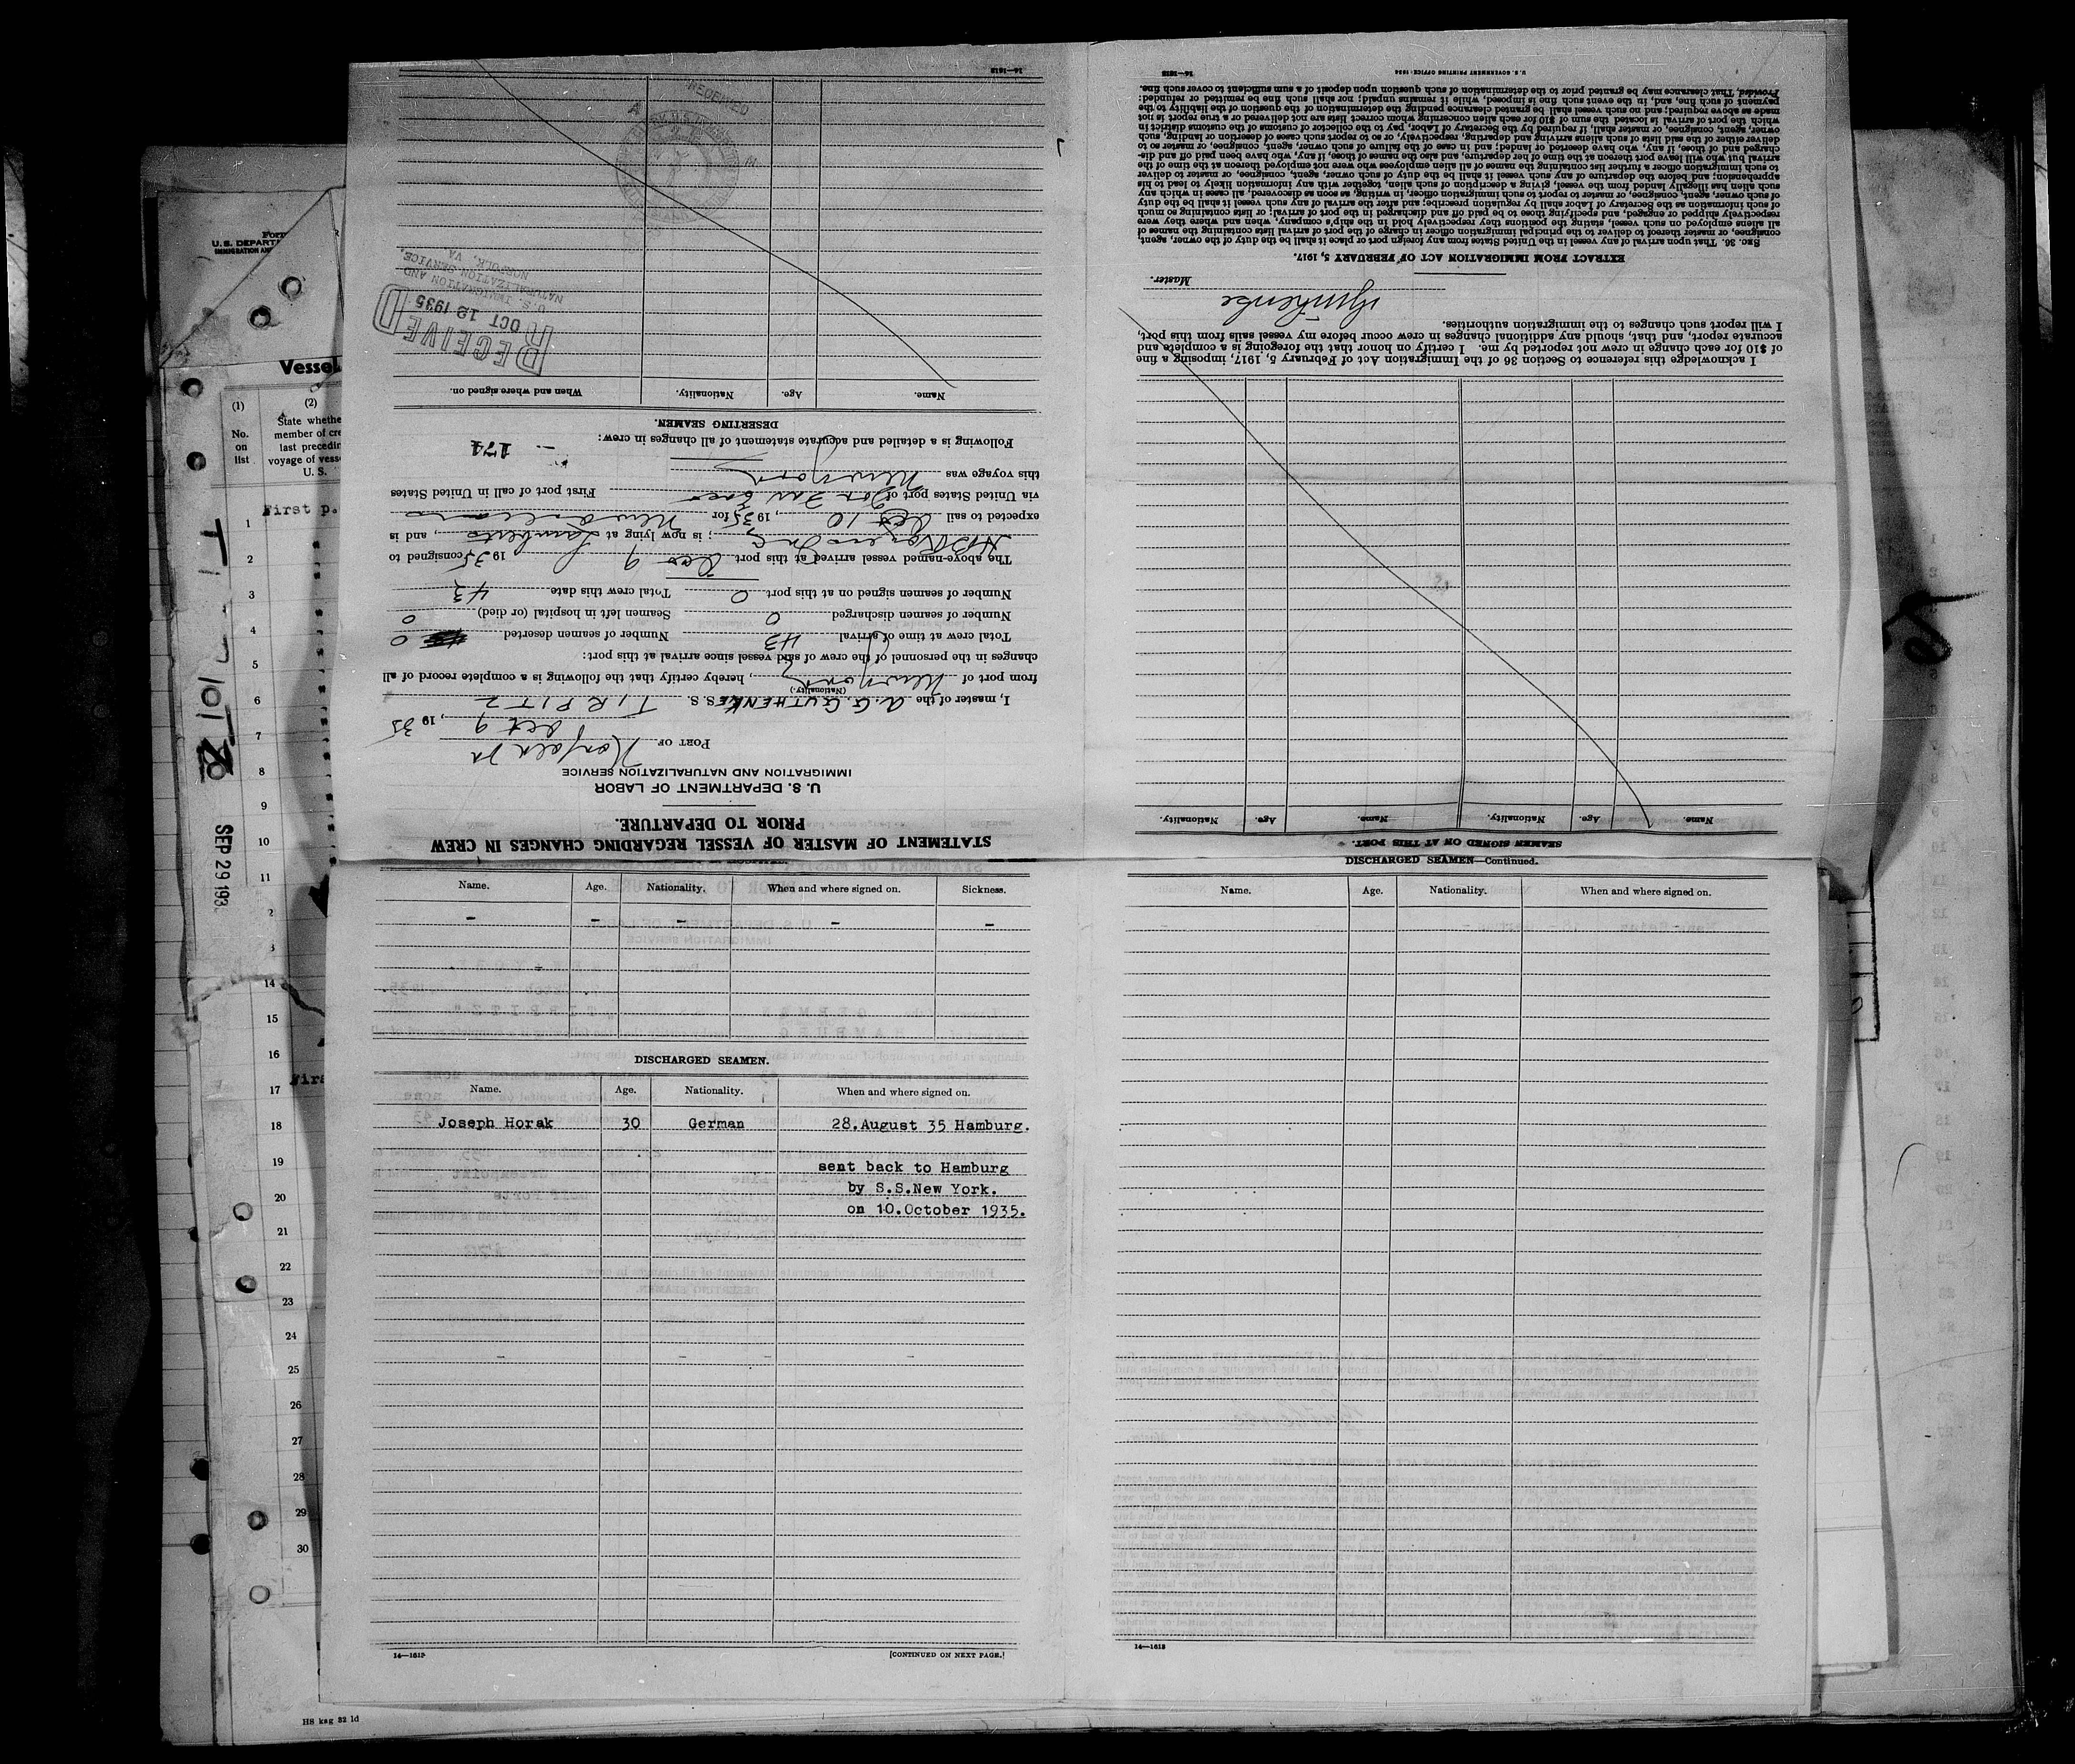 STATEMENT OF MASTER OF VESSEL REGARDING CHANGES IN CREW
PRIOR TO DEPARTURE.
U. S. DEPARTMENT OF LABOR
IMMIGRATION AND NATURALIZATION SERVICE
PORT OF Norfolk Va
Oct 9, 1935
I, master of the A. G. GUTHENKE S. S. TIRPITZ
(Nationality.)
from port of New York, hereby certify that the following is a complete record of all
changes in the personnel of the crew of said vessel since arrival at this port:
Total crew at time of arrival 43 Number of seamen deserted 0
Number of seamen discharged 0 Seamen left in hospital (or died) 0
Number of seamen signed on at this port 0 Total crew this date 43
The above-named vessel arrived at this port 9 1935 consigned to
; is now lying at Lamberts, and is
expected to sail Oct 10, 1935 for New Orleans
via United States port of First port of call in United States
this voyage was New York
Following is a detailed and accurate statement of all changes in crew:
- 171
DESERTING SEAMEN.
Name. Age. Nationality. When and where signed on.
RECEIVED
OCT 12 1935
U. S. IMMIGRATION AND
NATURALIZATION SERVICE
NORFOLK, VA
RECEIVED
14—1618
SEAMEN SIGNED ON AT THIS PORT.
Name. Age. Nationality. Name. Age. Nationality.
I acknowledge this reference to Section 36 of the Immigration Act of February 5, 1917, imposing a fine
of $10 for each change in crew not reported by me. I certify on honor that the foregoing is a complete and
accurate report, and that, should any additional changes in crew occur before my vessel sails from this port,
I will report such changes to the immigration authorities.
Master.
EXTRACT FROM IMMIGRATION ACT OF FEBRUARY 5, 1917.
SEC. 36. That upon arrival of any vessel in the United States from any foreign port or place it shall be the duty of the owner, agent,
consignee, or master thereof to deliver to the principal immigration officer in charge of the port of arrival lists containing the names of
all aliens employed on such vessel, stating the positions they respectively hold in the ship's company, when and where they were
respectively shipped or engaged, and specifying those to be paid off and discharged in the port of arrival; or lists containing so much
of such information as the Secretary of Labor shall by regulation prescribe; and after the arrival of any such vessel it shall be the duty
of such owner, agent, consignee, or master to report to such immigration officer, in writing, as soon as discovered, all cases in which any
such alien has illegally landed from the vessel, giving a description of such alien, together with any information likely to lead to his
apprehension; and before the departure of any such vessel it shall be the duty of such owner, agent, consignee, or master to deliver
to such immigration officer a further list containing the names of all alien employees who were not employed thereon at the time of the
arrival but who will leave port thereon at the time of her departure, and also the names of those, if any, who have been paid off and dis-
charged and of those, if any, who have deserted or landed; and in case of the failure of such owner, agent, consignee, or master so to
deliver either of the said lists of such aliens arriving and departing, respectively, or so to report such cases of desertion or landing, such
owner, agent, consignee, or master, shall, if required by the Secretary of Labor, pay to the collector of customs of the customs district in
which the port of arrival is located the sum of $10 for each alien concerning whom correct lists are not delivered or a true report is not
made as above required; and no such vessel shall be granted clearance pending the determination of the question of the liability to the
payment of such fine, and, in the event such fine is imposed, while it remains unpaid; nor shall such fine be remitted or refunded:
Provided, That clearance may be granted prior to the determination of such question upon deposit of a sum sufficient to cover such fine.
U. S. GOVERNMENT PRINTING OFFICE: 1934
14—1618
Name. Age. Nationality. When and where signed on. Sickness.
- - - - -
DISCHARGED SEAMEN.
Name. Age. Nationality. When and where signed on.
Joseph Horak 30 German 28.August 35 Hamburg.
sent back to Hamburg
by S.S.New York.
on 10.October 1935.
14—1618
[CONTINUED ON NEXT PAGE.]
DISCHARGED SEAMEN—Continued.
Name. Age. Nationality. When and where signed on.
14—1618
Form
U. S. DEPART
IMMIGRATION AN
Vessel
(1) (2)
No. on list
State whethe
member of cre
last precedin
voyage of vess
U. S.
First p.
1
2
3
4
5
6
7
8
9
10
11
2
3
14
15
16
17
18
19
20
21
22
23
24
25
26
27
28
29
30
SEP 29 193
HS kag 32 ld